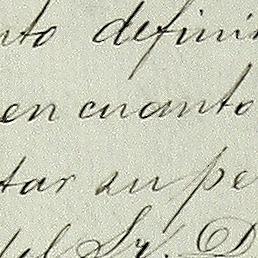 nto definin
en cuanto
tar su pe
del Sr. D